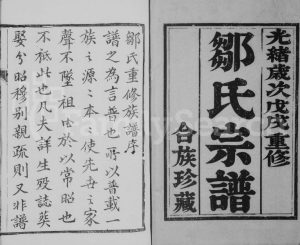 光緒歲次戊戌重修
鄒氏宗譜
合族珍藏
鄒氏重修族譜序
譜之為言普也所以普載一
族之源之本使先世之家
聲不墜祖功於以常昭也
不祗此也凡大詳生歿誌葬
娶分昭穆別親疏則又非譜